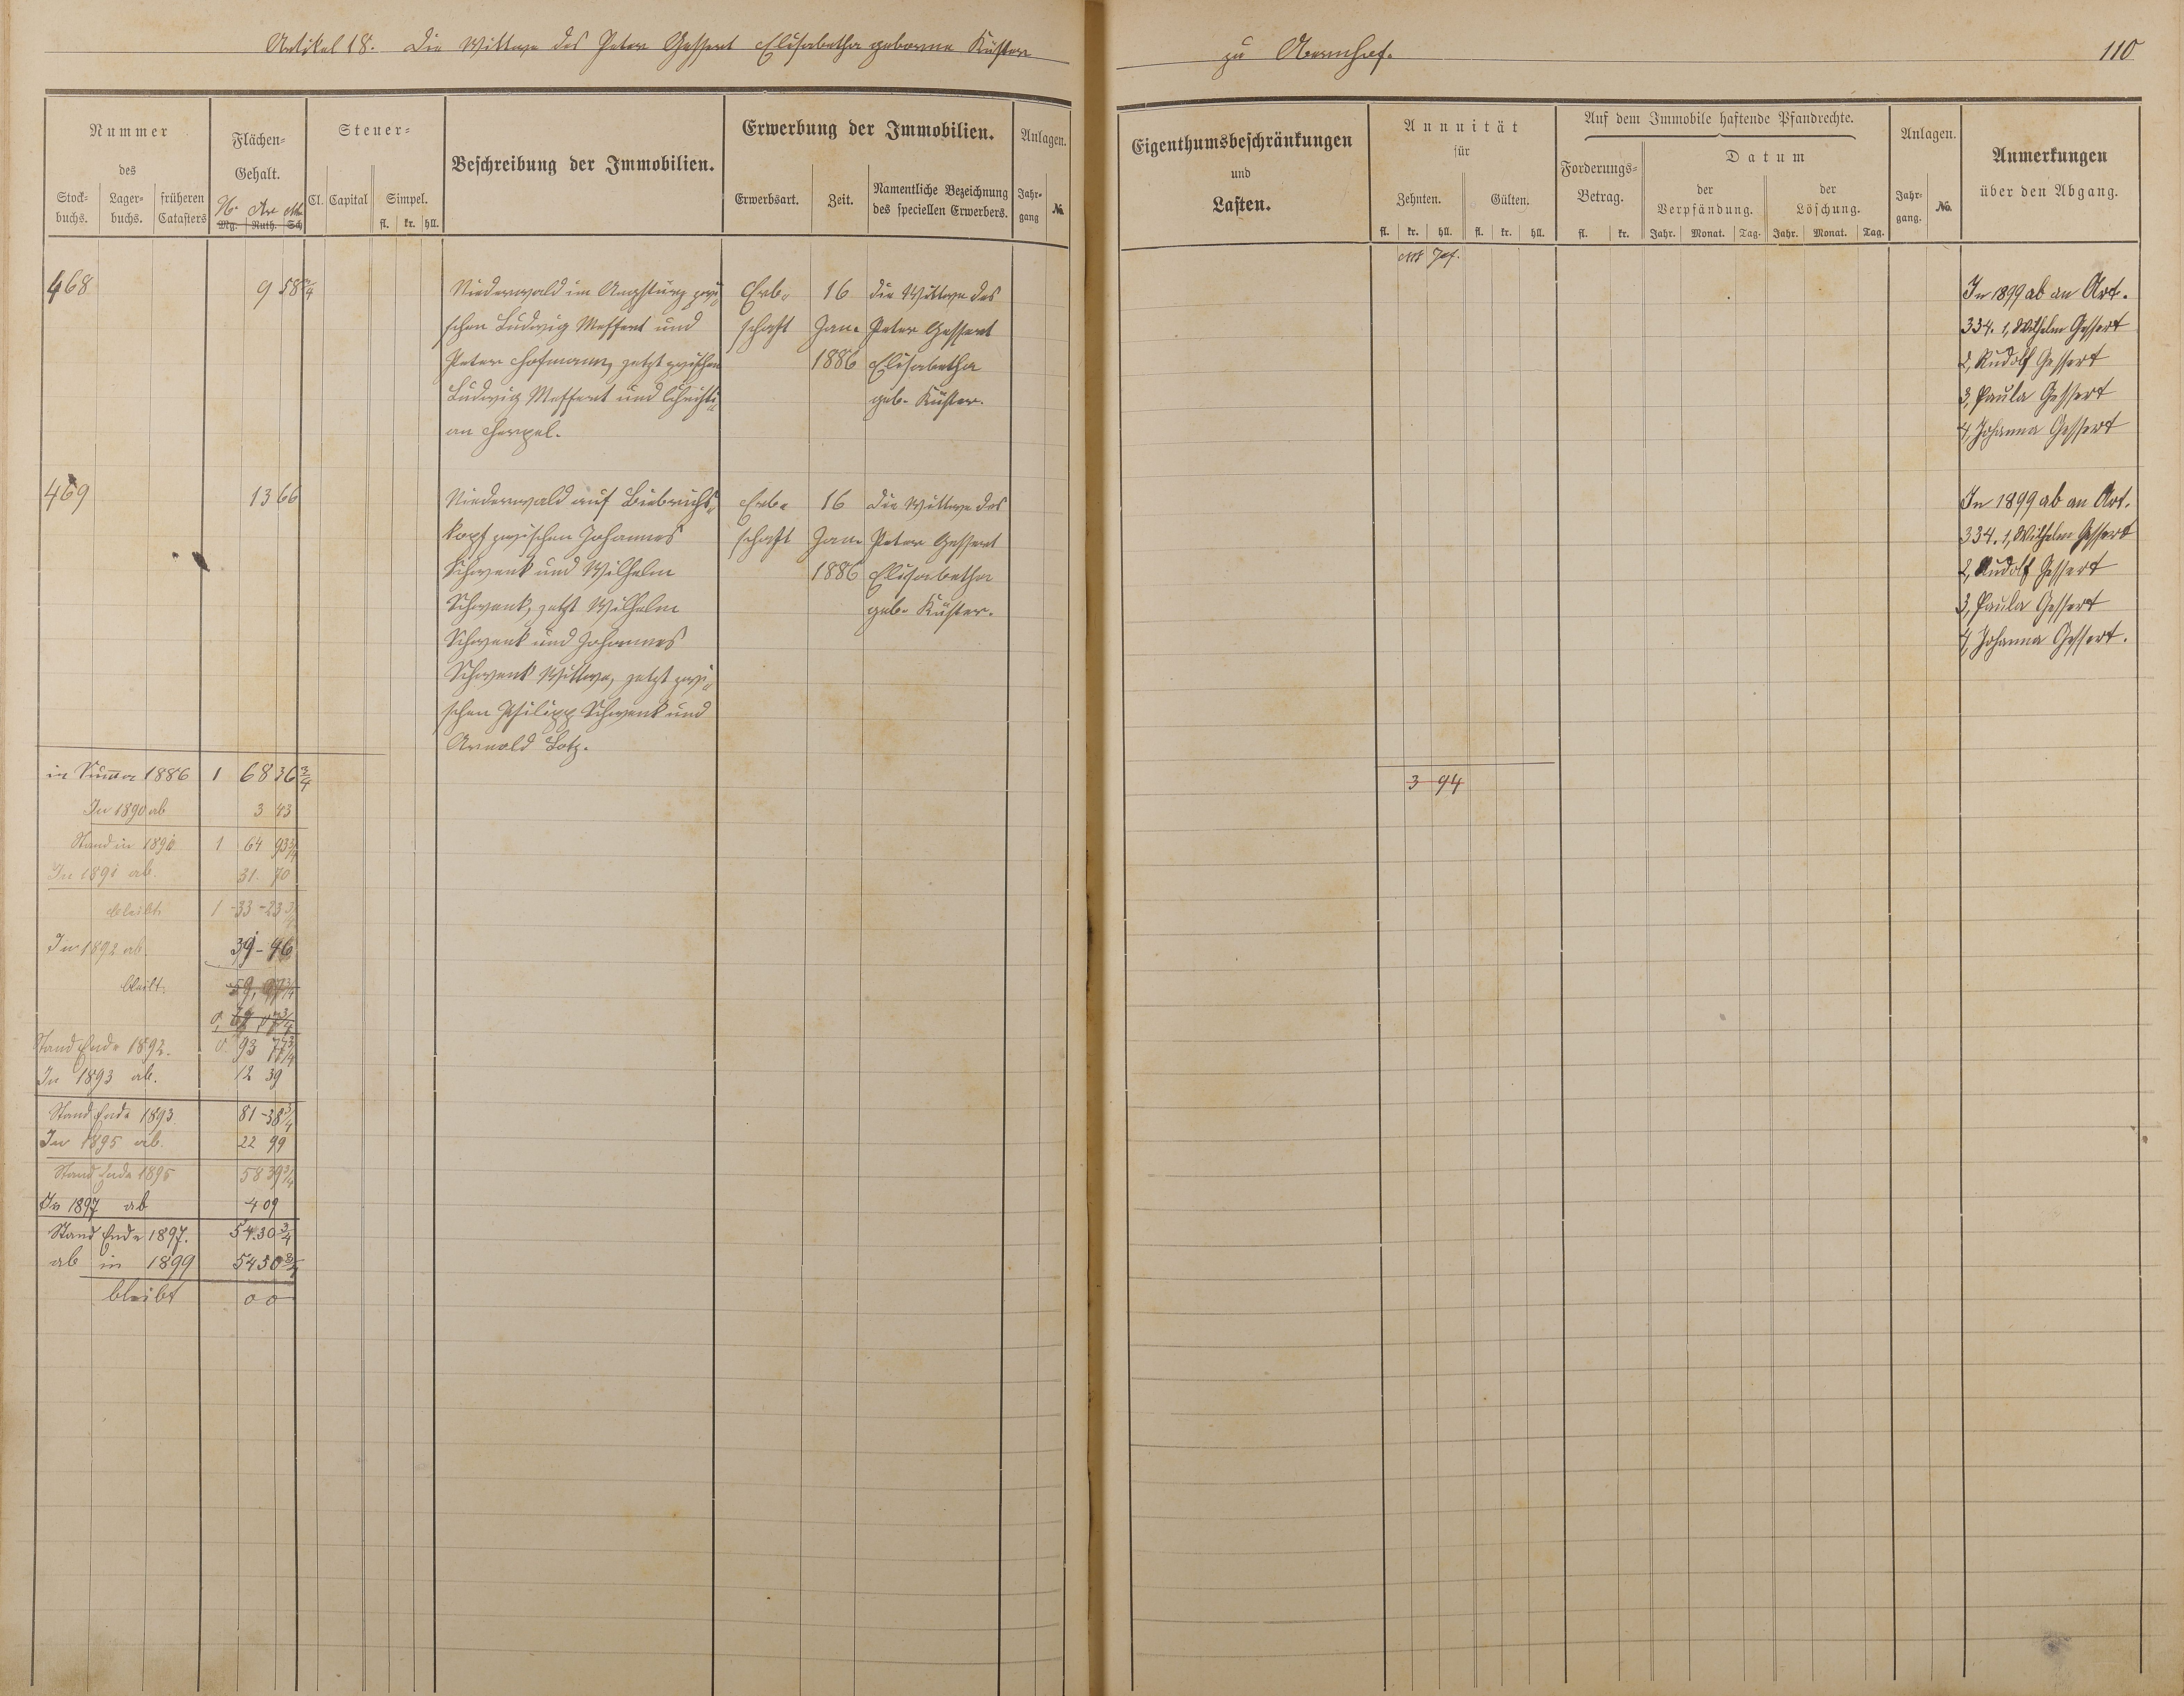 Artikel 18. Die Wittwe des Peter Gessert Elisabetha geborene Küster
zu Obernhof.
110
Nummer
des
Stock-
buchs.
Lager-
buchs.
früheren
Catasters
Flächen-
Gehalt.
H. Ar Mtr
Mg. Ruth. Sch
Steuer-
Cl. Capital
Simpel.
fl. kr. hll.
Beschreibung der Immobilien.
Erwerbung der Immobilien.
Erwerbsart.
Zeit.
Namentliche Bezeichnung
des speciellen Erwerbers.
Anlagen.
Jahr-
gang
No.
Eigenthumsbeschränkungen
und
Lasten.
Annuität
für
Zehnten.
Gülten.
fl. kr. hll. fl. kr. hll.
Auf dem Immobile haftende Pfandrechte.
Forderungs-
Betrag.
fl. kr.
Datum
der
Verpfändung.
der
Löschung.
Jahr. Monat. Tag. Jahr. Monat. Tag.
Anlagen.
Jahr-
gang.
No.
Anmerkungen
über den Abgang.
468
9 58 3/4
Niederwald im zwi-
schen Ludwig Meffert und
Peter Hofmann, jetzt zwischen
Ludwig Meffert und Christi-
an Herpel.
Erb-
schaft
16
Jan.
1886
die Wittwe des
Peter Gessert
Elisabetha
geb. Küster.
In 1899 ab an Art.
334. 1, Wilhelm Gessert
2, Rudolf Gessert
3, Paula Gessert
4, Johanna Gessert
469
13 66
Niederwald auf Biebrichs-
kopf zwischen Johannes
Schwenk und Wilhelm
Schwenk, jetzt Wilhelm
Schwenk und Johannes
Schwenk Wittwe, jetzt zwi-
schen Philipp Schwenk und
Arnold Lotz.
Erb-
schaft
16
Jan.
1886
die Wittwe des
Peter Gessert
Elisabetha
geb. Küster.
In 1899 ab an Art.
334. 1, Wilhelm Gessert
2, Rudolf Gessert
3, Paula Gessert
4, Johanna Gessert.
in Summa 1886 1 68 36 3/4
3 94
In 1890 ab 3 43
Stand in 1890 1 64 93 3/4
In 1891 ab. 31. 70
bleibt 1 - 33 - 23 3/4
In 1892 ab. 39 - 46
bleibt.
Stand Ende 1892. 0. 93 77 3/4
In 1893 ab. 12 39
Stand Ende 1893 81 - 38 3/4
In 1895 ab. 22 99
Stand Ende 1895 58 39 3/4
In 1897 ab 4 09
Stand Ende 1897. 54.30 3/4
ab in 1899 54 30 3/4
bleibt 0 0